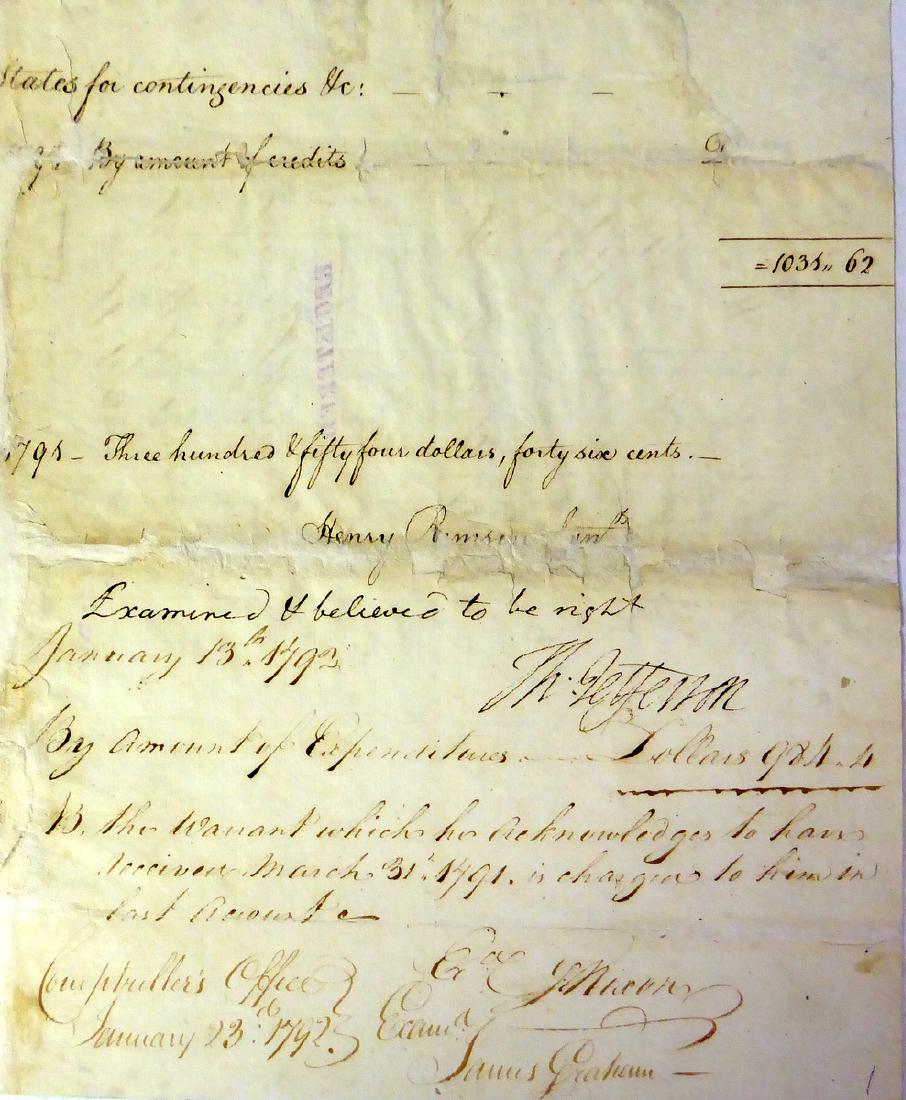 States for contingencies &c:
By amount of credits
D
= 1031,, 62
REGISTER
1791 - Three hundred & fifty four dollars, forty six cents. -
Henry Remsen Junr
Examined & believed to be right
January 13th. 1792.
Th: Jefferson
By Amount of Expenditures Dollars 984. 4
B. the Warrant which he Acknowledges to have
received March 31st. 1791. is charged to him in
last Account
Comptroller's Office
January 23d. 1792.
Exd
Examd
James Graham